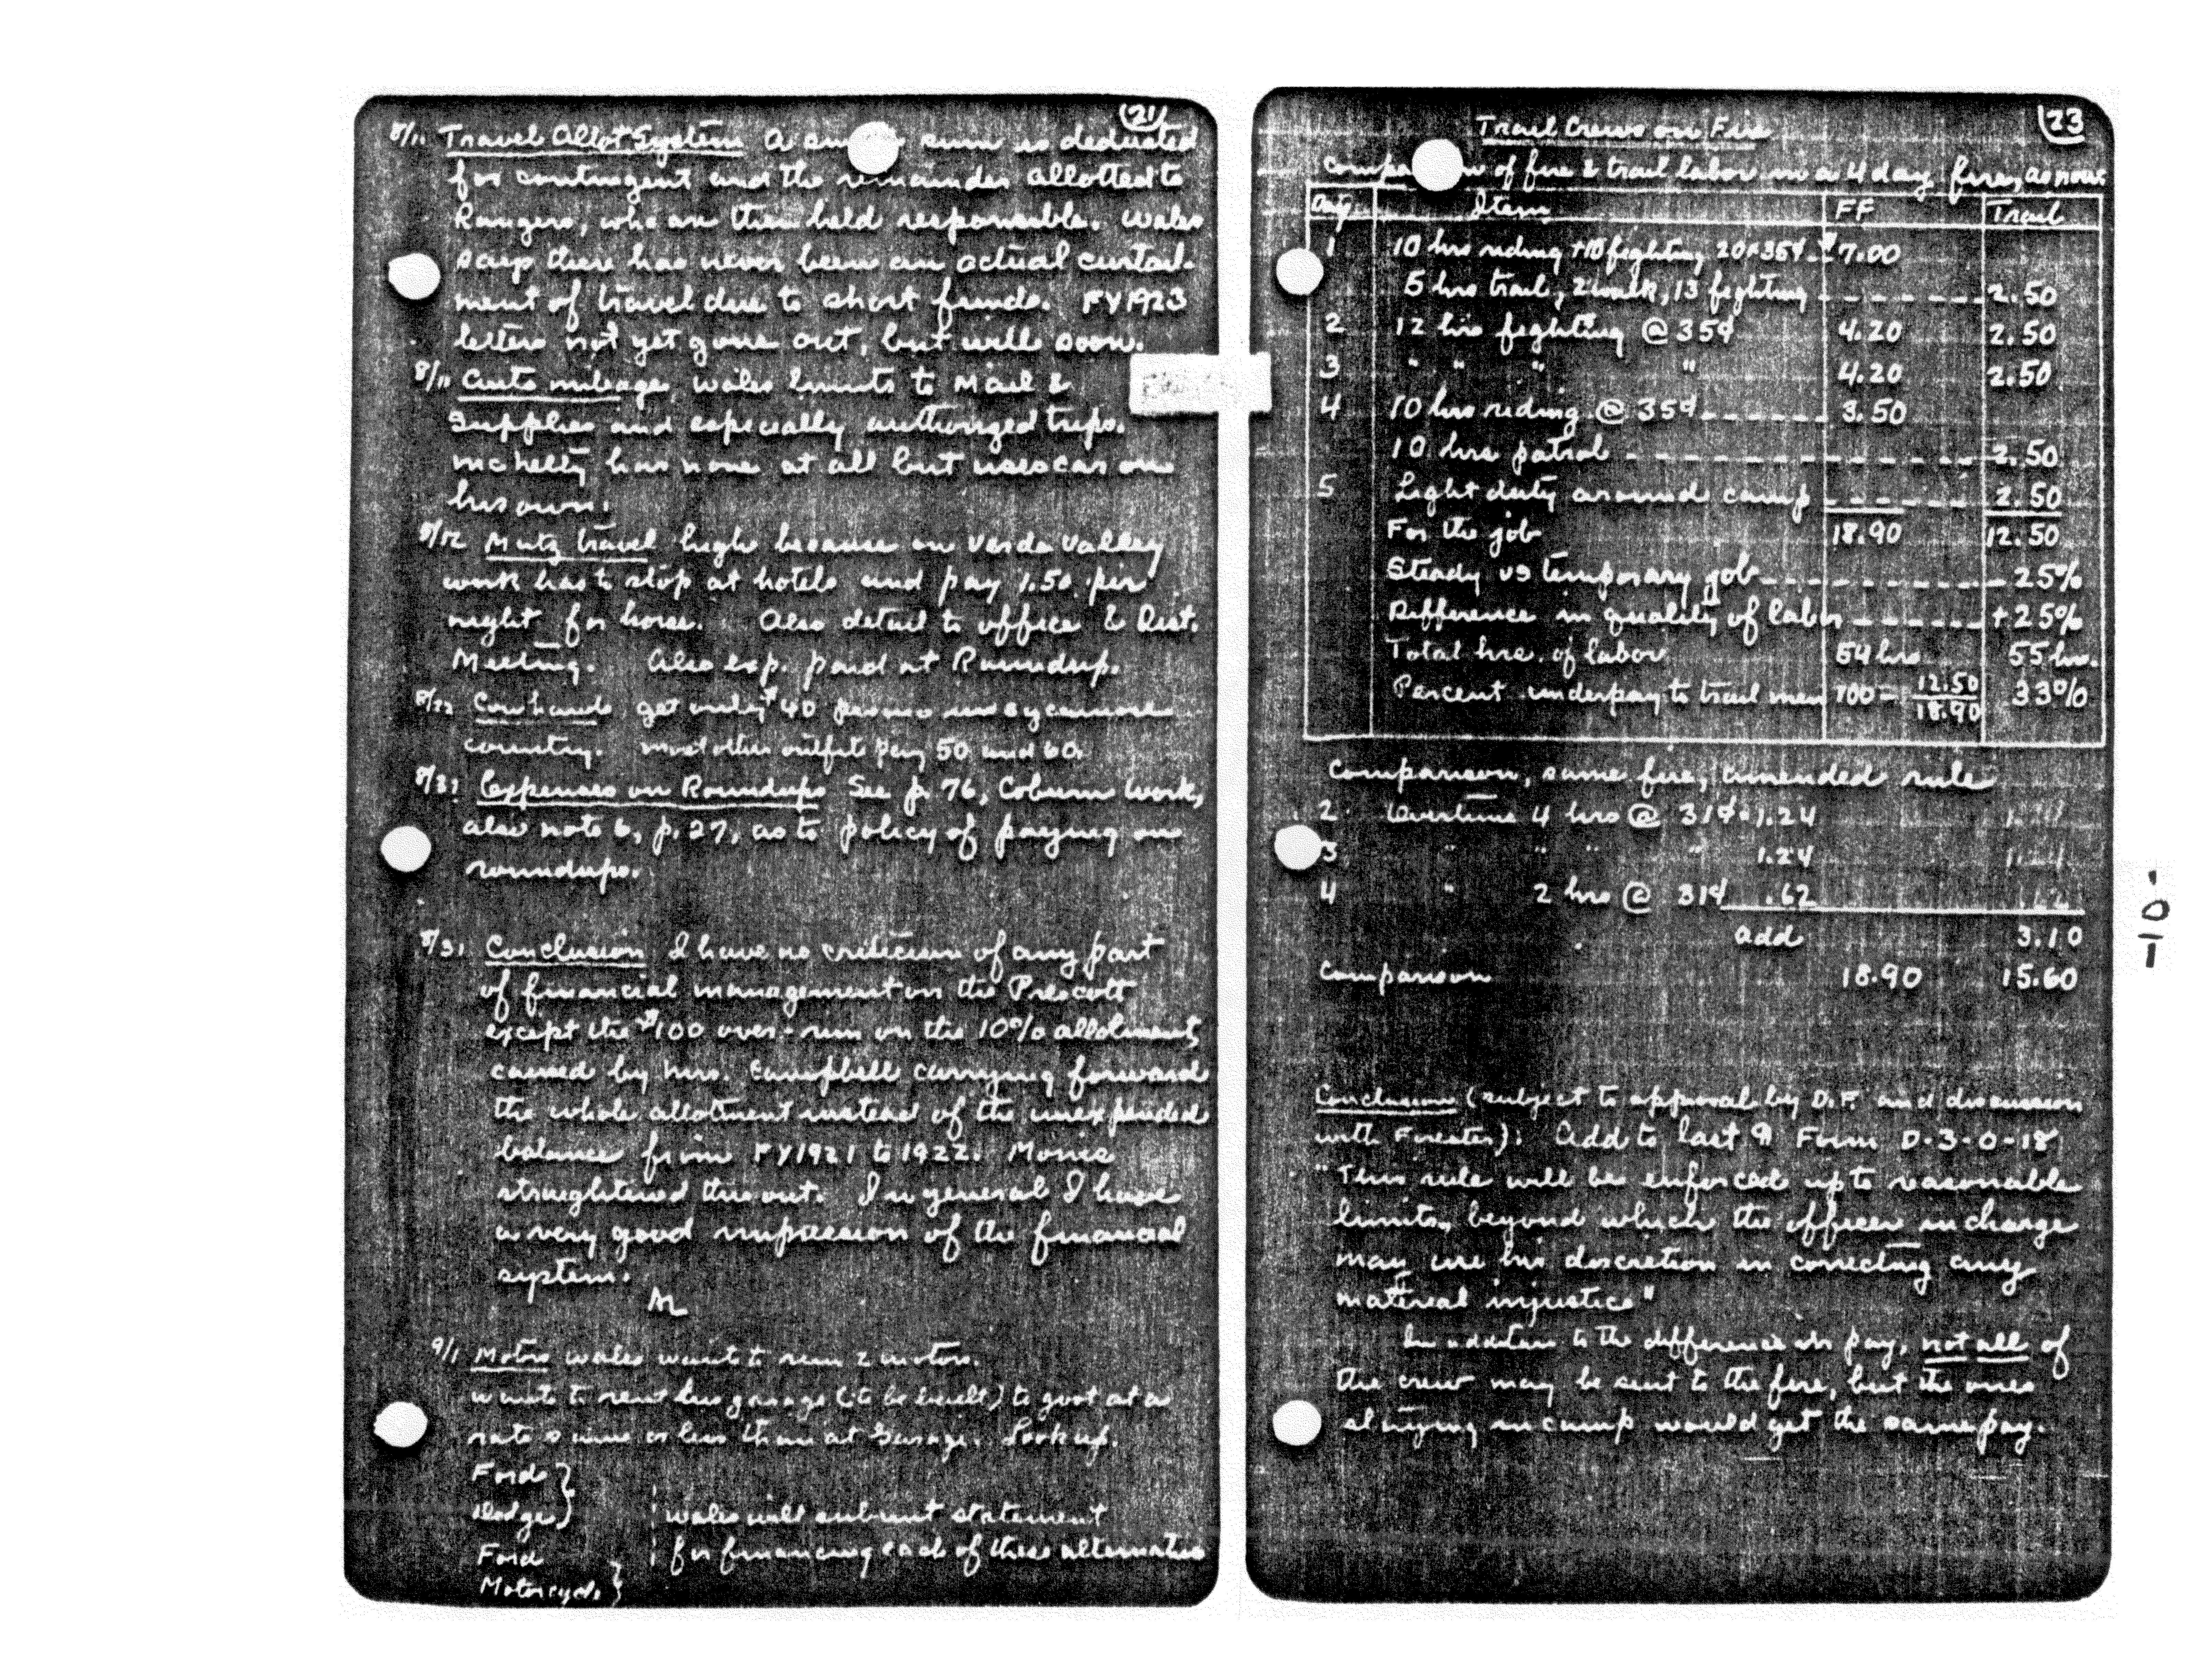 21
8/11 Travel Allot System A sum is deducted
for contingent and the remainder allotted to
Rangers, who are then held responsible. Wales
says there has never been an actual curtail-
ment of travel due to short funds. FY 1923
letters not yet gone out, but will soon.
8/11 Auto mileage, Wales limits to Mail &
Supplies and especially authorized trips.
McNelty has none at all but uses car on
his own.
8/12 Mutz travel high because on Verde Valley
work has to stop at hotels and pay 1.50 per
night for horse. Also detail to office & Dist.
Meeting. Also exp. paid at Roundup.
8/22 Cowhands get only $40 in Sycamore
country. Most other outfits pay 50 and 60.
8/31 Expenses on Roundups See p. 76, Coburn work,
also note 6, p. 27, as to policy of paying on
roundups.
8/31 Conclusion I have no criticism of any part
of financial management on the Prescott
except the $100 over-run on the 10% allotment,
caused by Mrs. Campbell carrying forward
the whole allotment instead of the unexpended
balance from FY 1921 to 1922. Morris
straightened this out. In general I have
a very good impression of the financial
system.
AL
9/1 Motors Wales wants to run 2 motors.
Wants to rent his garage (to be built) to govt at a
rate same or less than at Garage. Look up.
Fords }
Dodge }
Wales will submit statement
Ford
for financing each of these alternatives
Motorcycle }
23
Trail Crews on Fire
Comparison of fire & trail labor in a 4 day fire, as now:
Day Item FF Trail
1 10 hrs riding + 10 fighting 20 x 35¢ $7.00
5 hrs trail, 2 walk, 13 fighting ------- 2.50
2 12 hrs fighting @ 35¢ 4.20 2.50
3 " " " " 4.20 2.50
4 10 hrs riding @ 35¢ ----- 3.50
10 hrs patrol ------------- 2.50
5 Light duty around camp ------ 2.50
For the job 18.90 12.50
Steady vs temporary job ---------- 25%
Difference in quality of labor ------ +25%
Total hrs. of labor 54 hrs 55 hrs.
Percent underpay to trail men 100 - 12.50/18.90 33%
Comparison, same fire, amended rule
2 Overtime 4 hrs @ 31¢ = 1.24
3 " " " " 1.24
4 " 2 hrs @ 31¢ .62
add 3.10
Comparison 18.90 15.60
Conclusion (subject to approval by D.F. and discussion
with Forester): Add to last ¶ Form D-3-O-18
"This rule will be enforced up to reasonable
limits, beyond which the officer in charge
may use his discretion in correcting any
material injustice"
In addition to the difference in pay, not all of
the crew may be sent to the fire, but the ones
staying in camp would get the same pay.